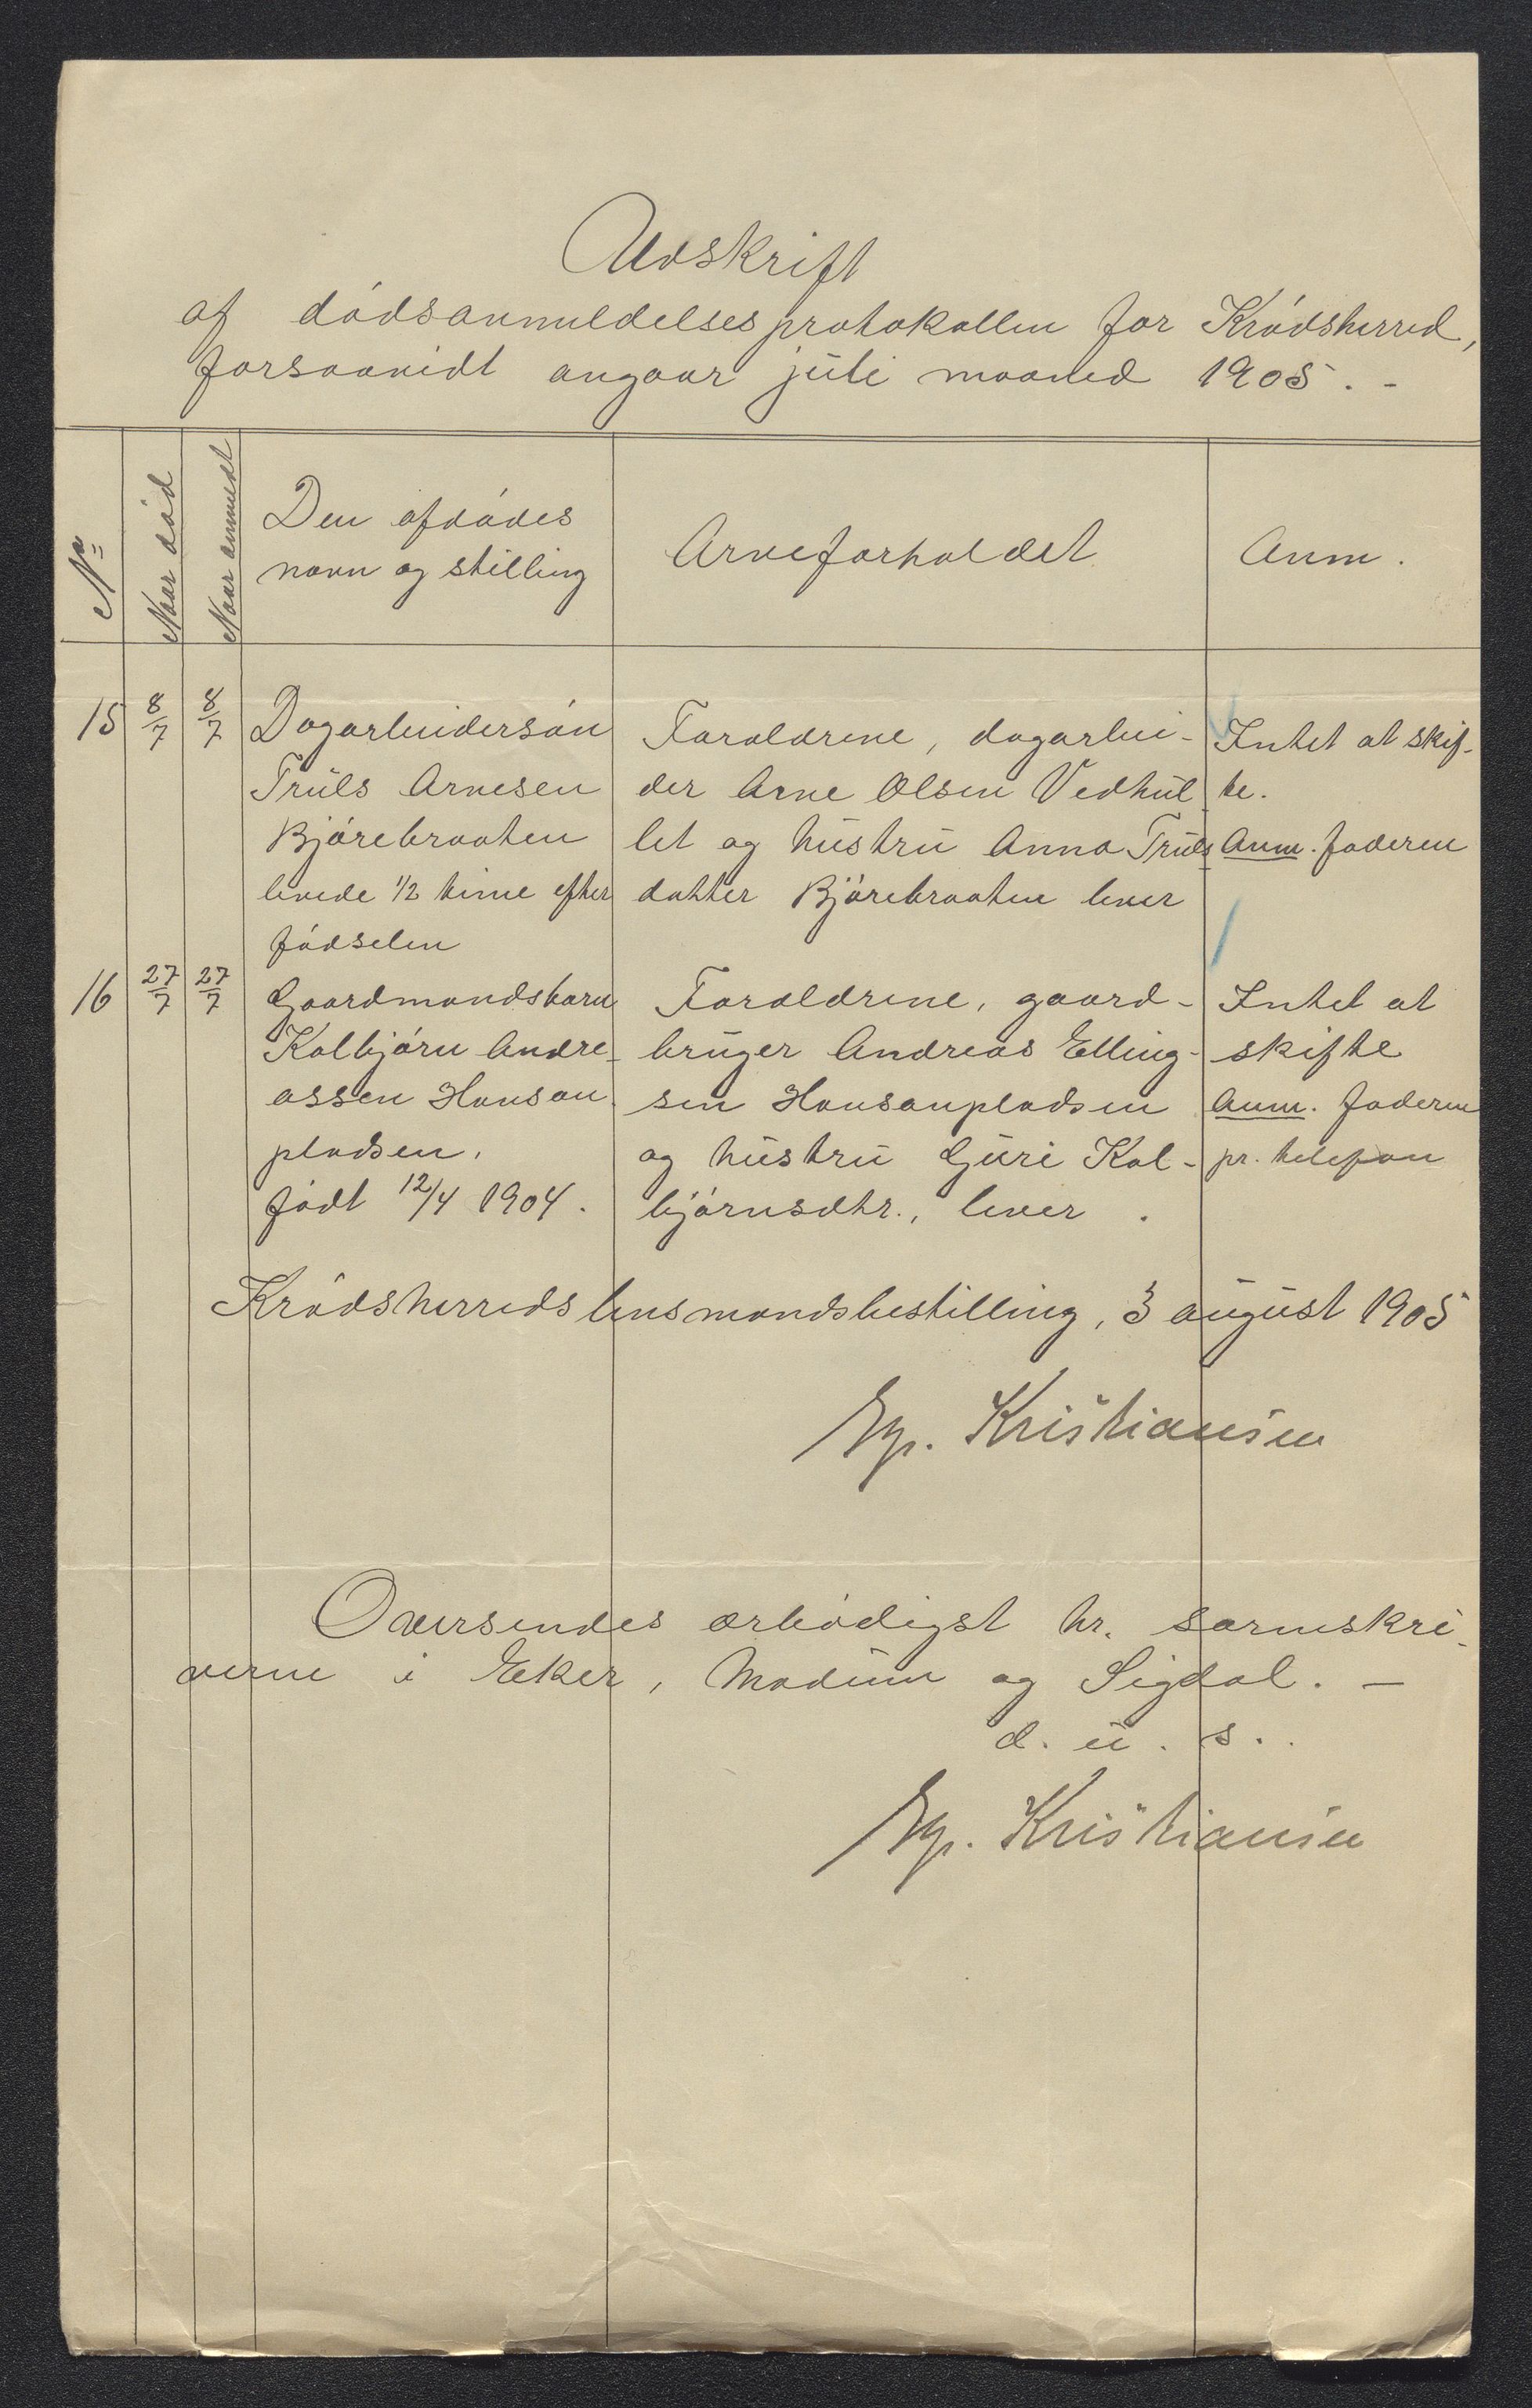 Udskrift
af dødsanmeldelsesprotokollen for Krødsherred,
forsaavidt angaar juli maaned 1905. -
No
Naar død
Naar anmeldt
Den afdødes
navn og stilling
Arveforholdet
Anm.
15
8/7
8/7
Dagarbeidersøn
Truls Arnesen
Bjørebraaten
levede 1/2 time efter
fødselen
Forældrene, dagarbei-
der Arne Olsen Vedhul
let og hustru Anna Truls
datter Bjørebraaten lever
Intet at skif-
te.
Anm. faderen
16
27/7
27/7
Gaardmandsbarn
Kolbjørn Andre-
assen Hovsan
pladsen.
født 12/4 1904.
Forældrene, gaard-
bruger Andreas Elling-
sen Hovsanpladsen
og hustru Guri Kol-
bjørnsdtr., lever.
Intet at
skifte
Anm. faderen
pr. telefon
Krødsherreds lensmandsbestilling, 3 august 1905
Kristiansen
Oversendes ærbødigst hr. sorenskri-
veren i Eker, Modum og Sigdal. -
d. u. s.
Kristiansen